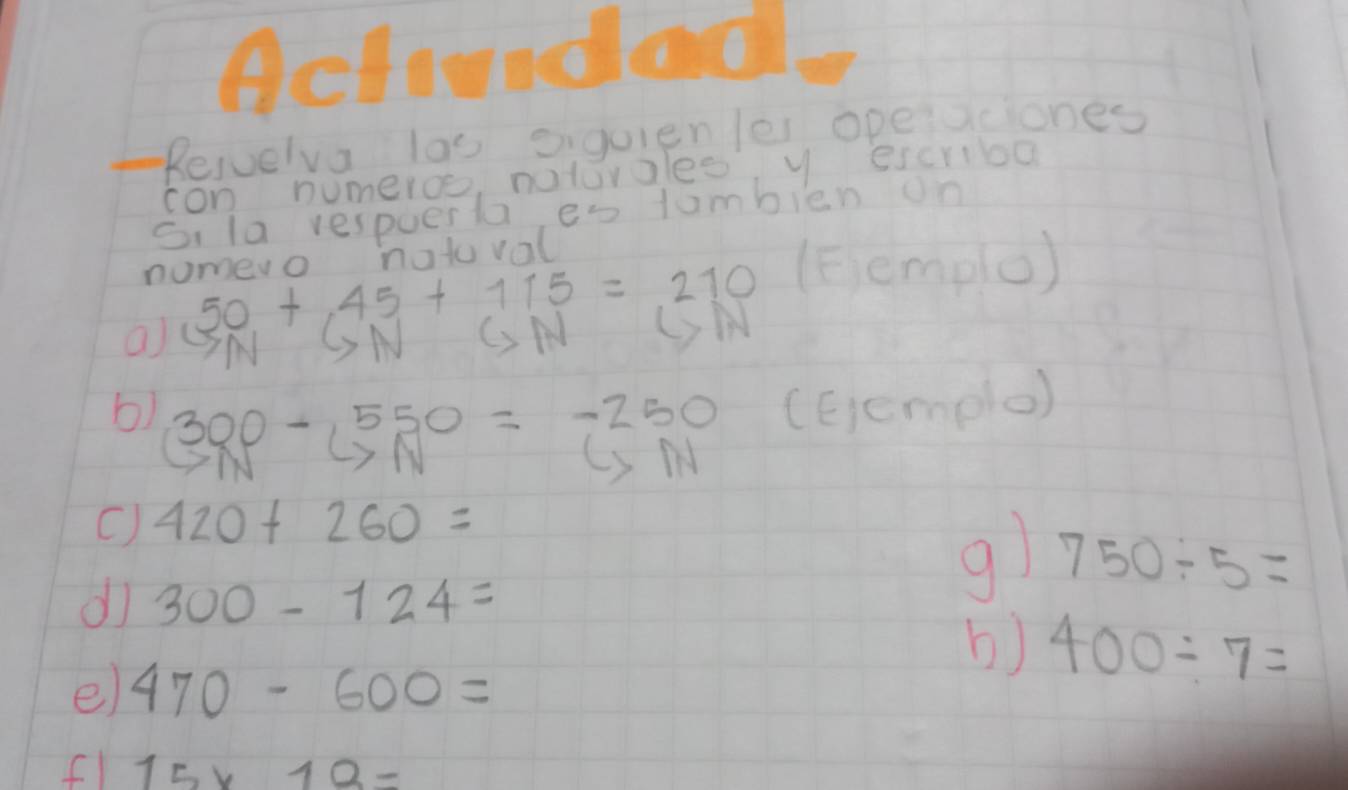 Actividad.
- Resuelva las siguientes operaciones
con numeros, naturales y escriba
si la respuesta es tambien un
numero natural
a) 50 + 45 + 115 = 210 (Ejemplo)
↳N ↳N ↳N ↳N
b) 300 - 550 = -250 (Ejemplo)
↳N ↳N ↳N
c) 420 + 260 =
d) 300 - 124 =
e) 470 - 600 =
f) 15 x
g) 750 ÷ 5 =
h) 400 ÷ 7 =